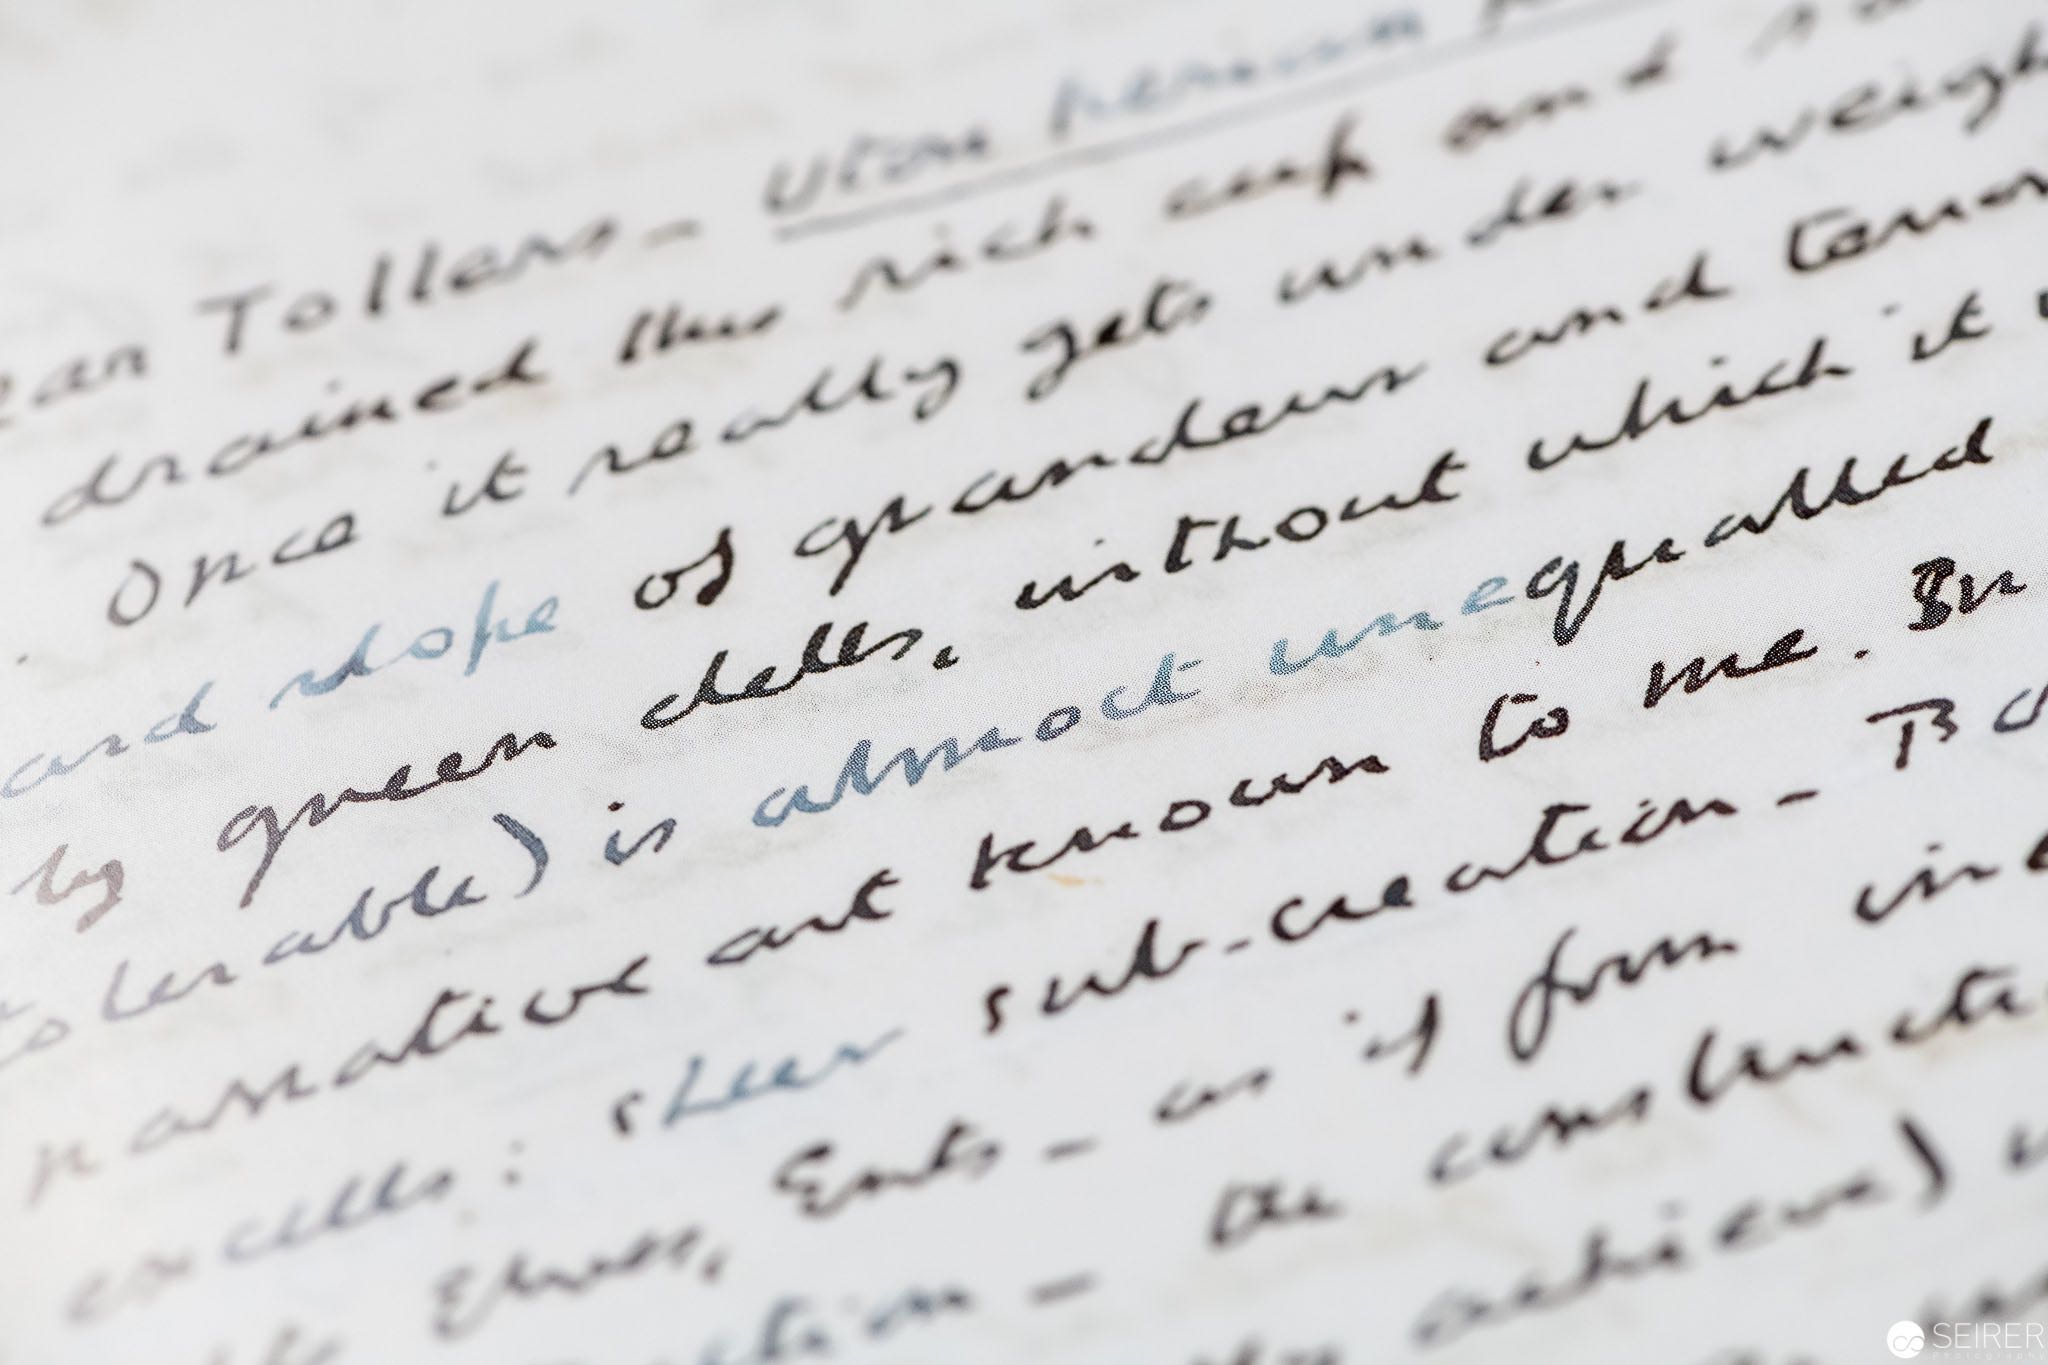 Tollers – Uton herian
drained this rich cup and
Once it really gets under weigh
and slope of grandeur and terror
by green dells, without which it
tolerable) is almost unequalled
narrative art known to me. In
excells: sheer sub-creation – Bo
Elves, Ents – as if from
– the constructi
achieve)
SEIRER
Photography